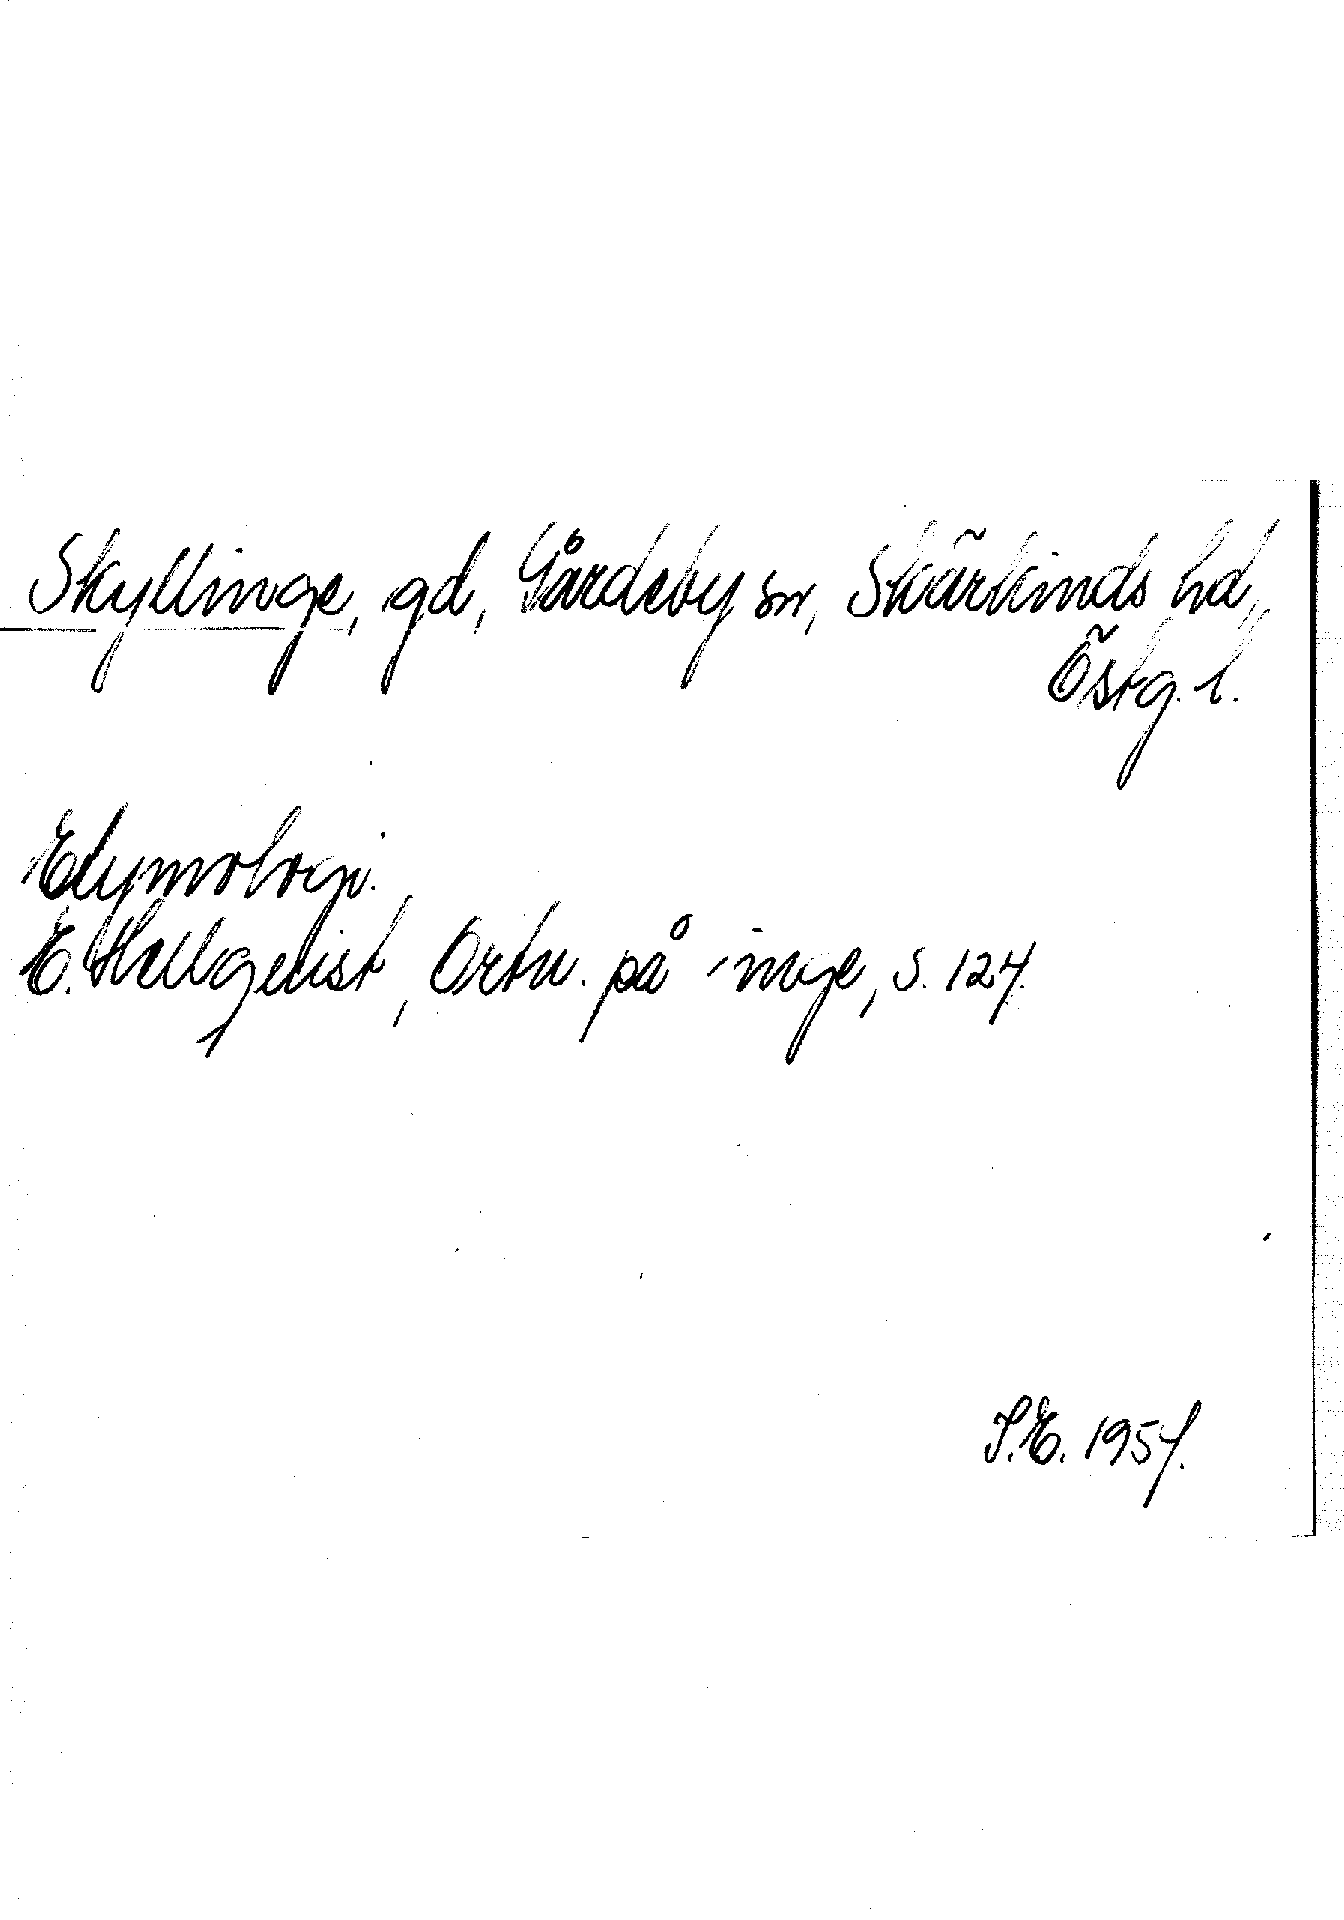 Skyllinge, gd, Gårdeby sn, Skärkinds hd,
Östg. l.
Etymologi.
E. Hellquist, Ortn. på -inge, s. 124.
S.E. 1957.